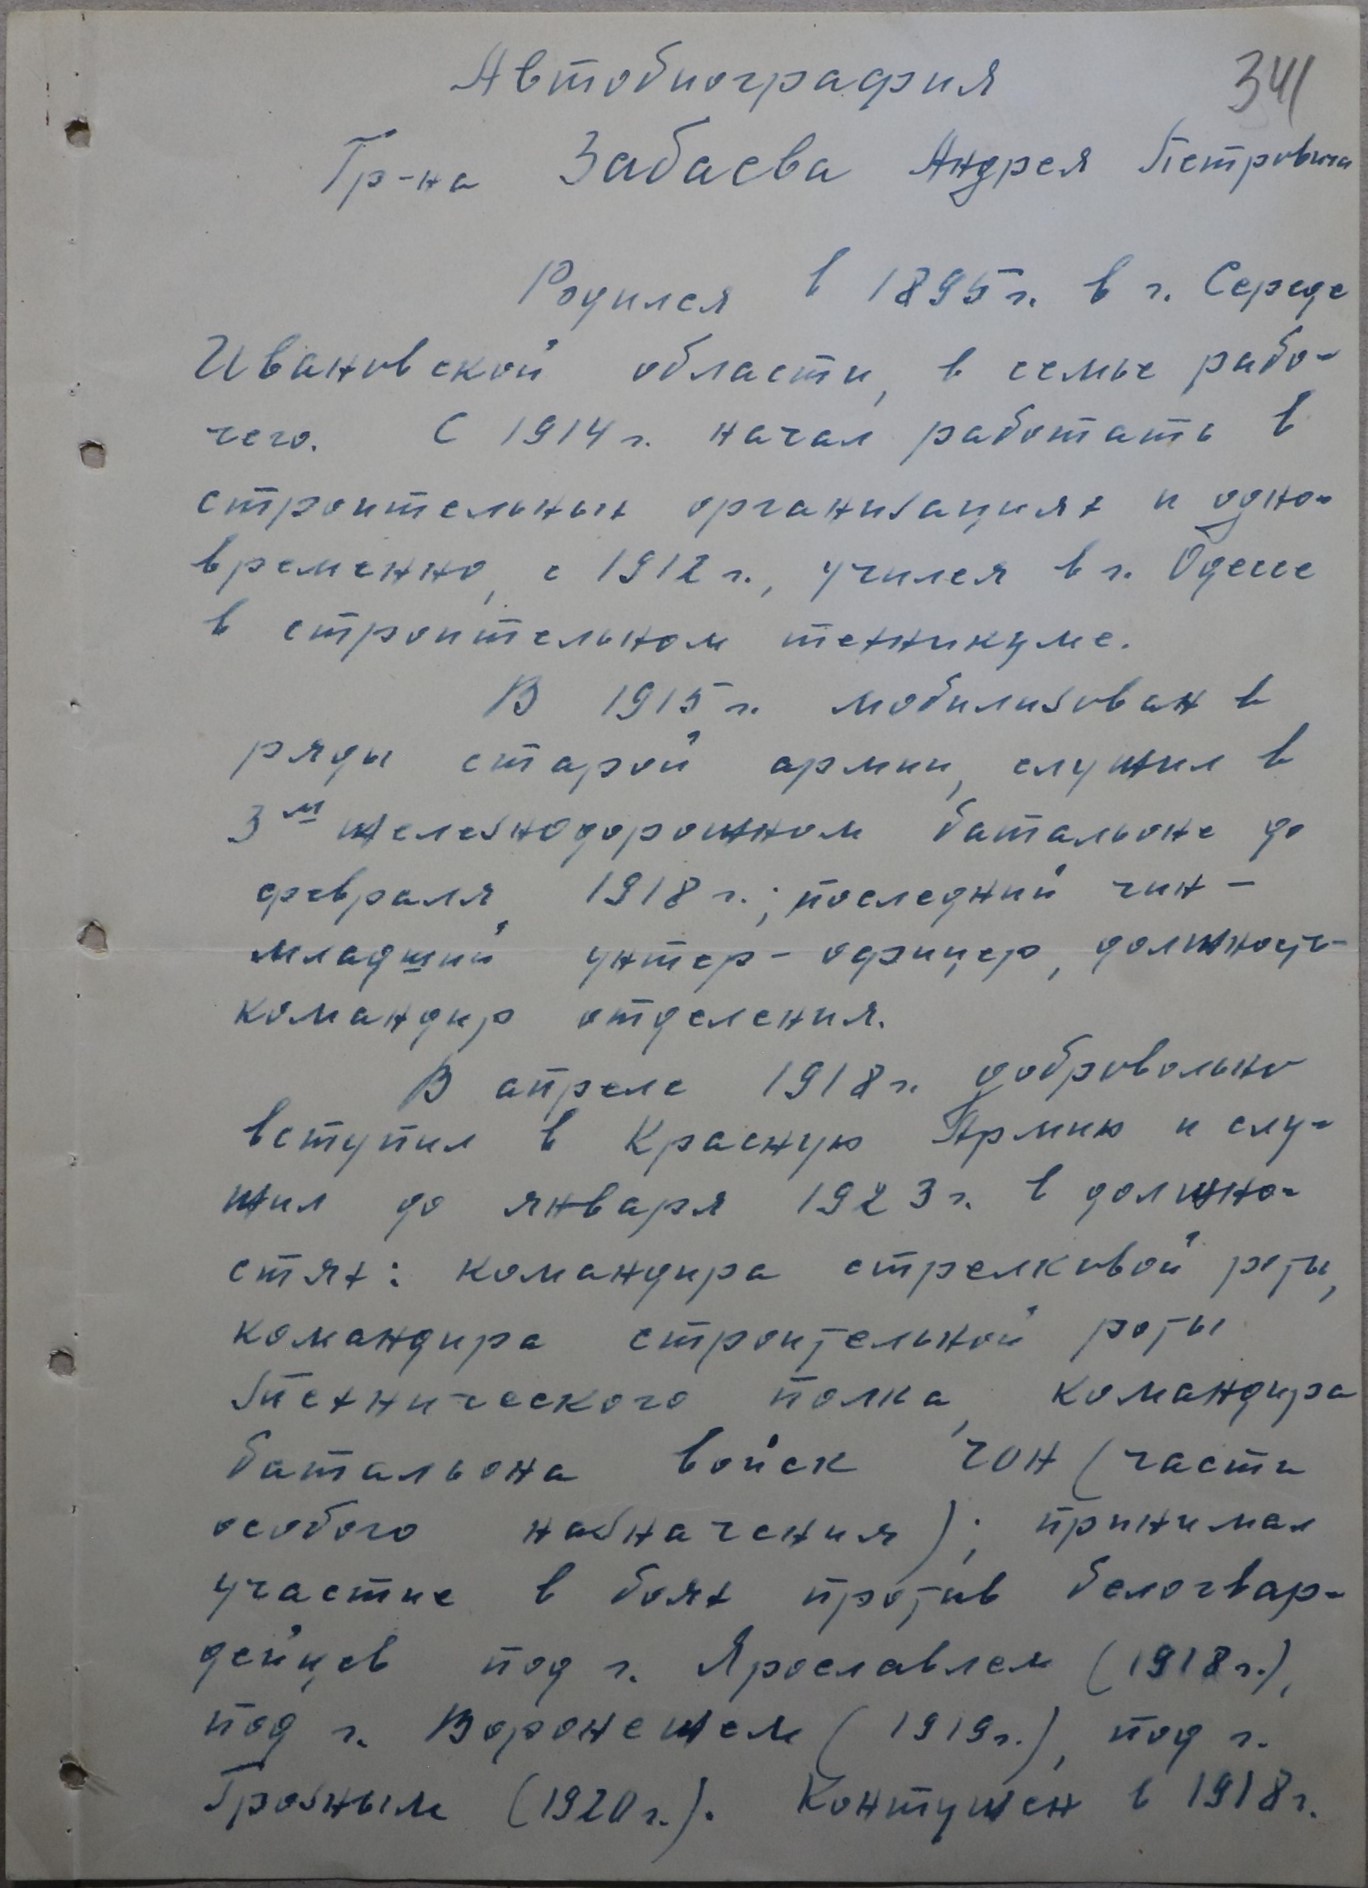 Автобиография
341
Гр-на Забаева Андрея Петровича
Родился в 1895 г. в г. Середе
Ивановской области, в семье рабо-
чего. С 1914 г. начал работать в
строительных организациях и одно-
временно, с 1912 г., учился в г. Одессе
в строительном техникуме.
В 1915 г. мобилизован в
ряды старой армии, служил в
3м железнодорожном батальоне до
февраля 1918 г.; последний чин -
младший унтер-офицер, должность
командир отделения.
В апреле 1918 г. добровольно
вступил в Красную Армию и слу-
жил до января 1923 г. в должно-
стях: командира стрелковой роты,
командира строительной роты
5технического полка, командира
батальона войск ЧОН (части
особого назначения); принимал
участие в боях против белогвар-
дейцев под г. Ярославлем (1918 г.),
под г. Воронежем (1919 г.), под г.
Грозным (1920 г.). Контужен в 1918 г.